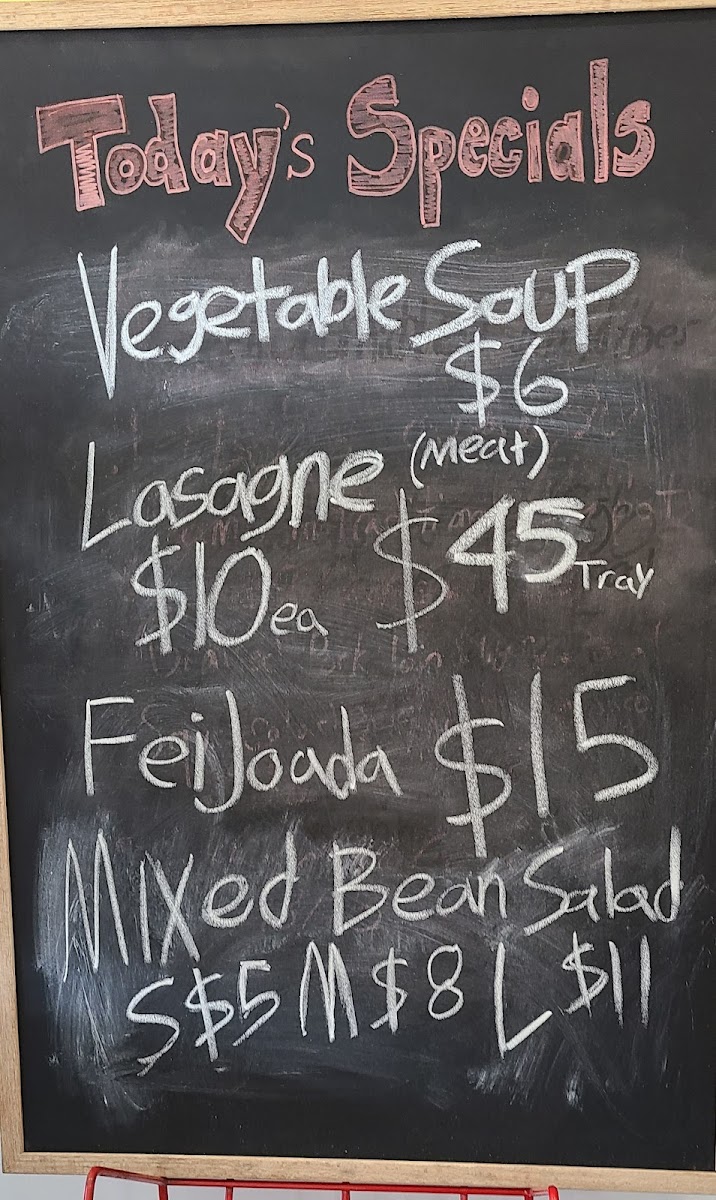 Today's Specials
Vegetable Soup
$6
Lasagne (Meat)
$10 ea $45 Tray
FeiJoada $15
Mixed Bean Salad
S $5 M $8 L $11